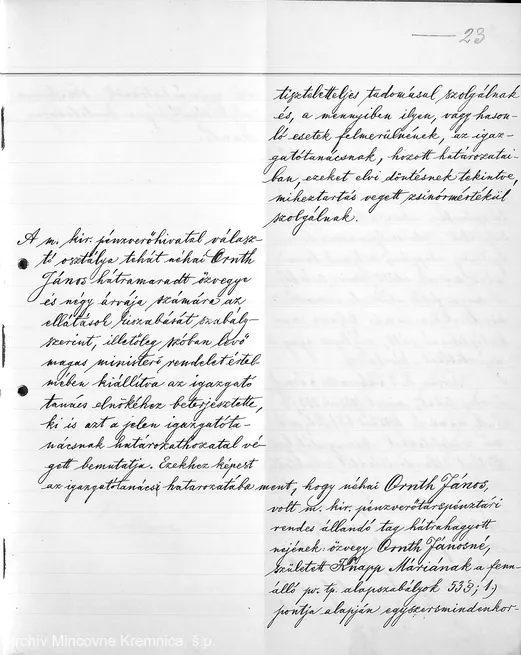 23
tiszteletteljes tudomásul szolgálnak
és, a mennyiben ilyen, vagy hason-
ló esetek felmerülnének, az igaz-
gatótanácsnak, hozott határozatai-
ban, ezeket elvi döntésnek tekintve,
miheztartás végett zsinórmértékül
szolgálnak.
A m. kir. pénzverőhivatal válasz-
tó osztálya tehát néhai Ornth
János hátramaradt özvegye
és négy árvája számára az
ellátások kiszabását szabály-
szerint, illetőleg szóban lévő
magas ministeri rendelet értel-
mében kiállítva az igazgató
tanács elnökéhez beterjesztette,
ki is azt a jelen igazgatóta-
nácsnak határozathozatal vé-
gett bemutatja. Ezekhez képest
az igazgatótanács határozatába ment, hogy néhai Ornth János,
volt m. kir. pénzverőtárspénztári
rendes állandó tag hátrahagyott
nejének: özvegy Ornth Jánosné,
született Knapp Máriának a fenn-
álló po. tp. alapszabályok 53§; 1.)
pontja alapján egyszersmindenkor-
Archív Mincovne Kremnica, š.p.